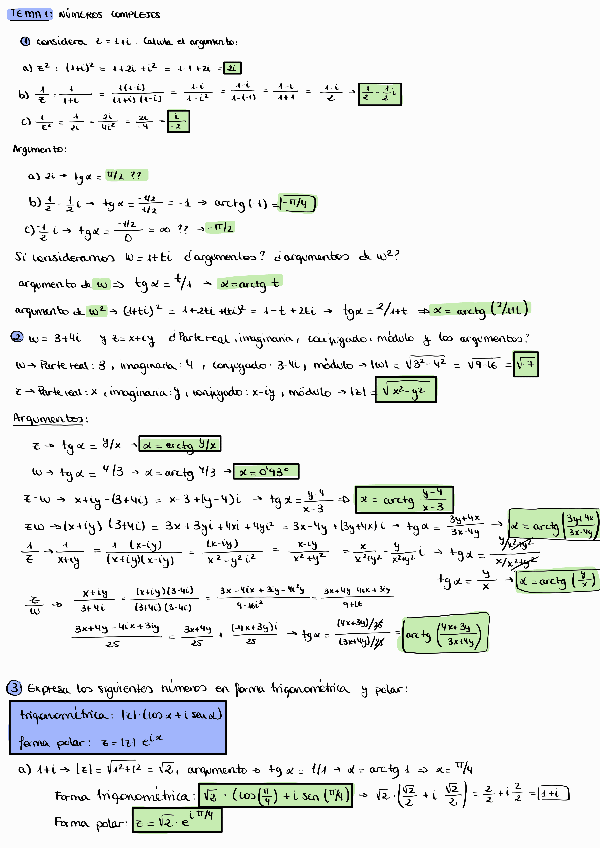 TEMA 1: NÚMEROS COMPLEJOS
① Considera z = 1+i. Calcula el argumento:
a) z² : (1+i)² = 1+2i+i² = 1-1+2i = 2i
b) 1/z = 1/(1+i) = 1(1-i)/((1+i)(1-i)) = (1-i)/(1-i²) = (1-i)/(1-(-1)) = (1-i)/(1+1) = (1-i)/2 → 1/2 - 1/2 i
c) 1/z² = 1/2i = 2i/4i² = 2i/4 = i/-2
Argumento:
a) 2i → tgα = π/2 ??
b) 1/2 - 1/2 i → tgα = (-1/2)/(1/2) = -1 → arctg(-1) = -π/4
c) -1/2 i → tgα = (-1/2)/0 = ∞ ?? → -π/2
Si consideramos w = 1+ti ¿argumentos? ¿argumentos de w²?
argumento de w ⇒ tgα = t/1 → α = arctg t
argumento de w² → (1+ti)² = 1+2ti+ti² = 1-t+2ti → tgα = 2/1+t ⇒ α = arctg (2/1+t)
② w = 3+4i y z = x+iy ¿Parte real, imaginaria, conjugado, módulo y los argumentos?
w → Parte real: 3, imaginaria: 4, conjugado: 3-4i, módulo → |w| = √3²-4² = √9-16 = √-7
z → Parte real: x, imaginaria: y, conjugado: x-iy, módulo → |z| = √x²-y²
Argumentos:
z → tgα = y/x → α = arctg y/x
w → tgα = 4/3 → α = arctg 4/3 → α = 0'93ᶜ
z-w → x+iy-(3+4i) = x-3+(y-4)i → tgα = (y-4)/(x-3) ⇒ α = arctg (y-4)/(x-3)
zw → (x+iy)(3+4i) = 3x+3yi+4xi+4yi² = 3x-4y+(3y+4x)i → tgα = (3y+4x)/(3x-4y) → α = arctg((3y+4x)/(3x-4y))
1/z → 1/(x+iy) = 1(x-iy)/((x+iy)(x-iy)) = (x-iy)/(x²-y²i²) = (x-iy)/(x²+y²) = x/(x²+y²) - y/(x²+y²) i → tgα = (y/x²+y²)/(x/x²+y²)
tgα = y/x → α = arctg(y/x)
z/w ⇒ (x+iy)/(3+4i) = (x+iy)(3-4i)/((3+4i)(3-4i)) = (3x-4ix+3iy-4i²y)/(9-16i²) = (3x+4y-4ix+3iy)/(9+16)
(3x+4y-4ix+3iy)/25 = (3x+4y)/25 + (-4x+3y)i/25 → tgα = ((4x+3y)/25)/((3x+4y)/25) = arctg((4x+3y)/(3x+4y))
③ Expresa los siguientes números en forma trigonométrica y polar:
trigonométrica: |z|·(cosα + i senα)
forma polar: z = |z| e^iα
a) 1+i → |z| = √1²+1² = √2, argumento → tgα = 1/1 → α = arctg 1 ⇒ α = π/4
Forma trigonométrica: √2 · (cos(π/4) + i sen(π/4)) → √2 · (√2/2 + i √2/2) = 2/2 + i 2/2 = 1+i
Forma polar: z = √2 · e^iπ/4